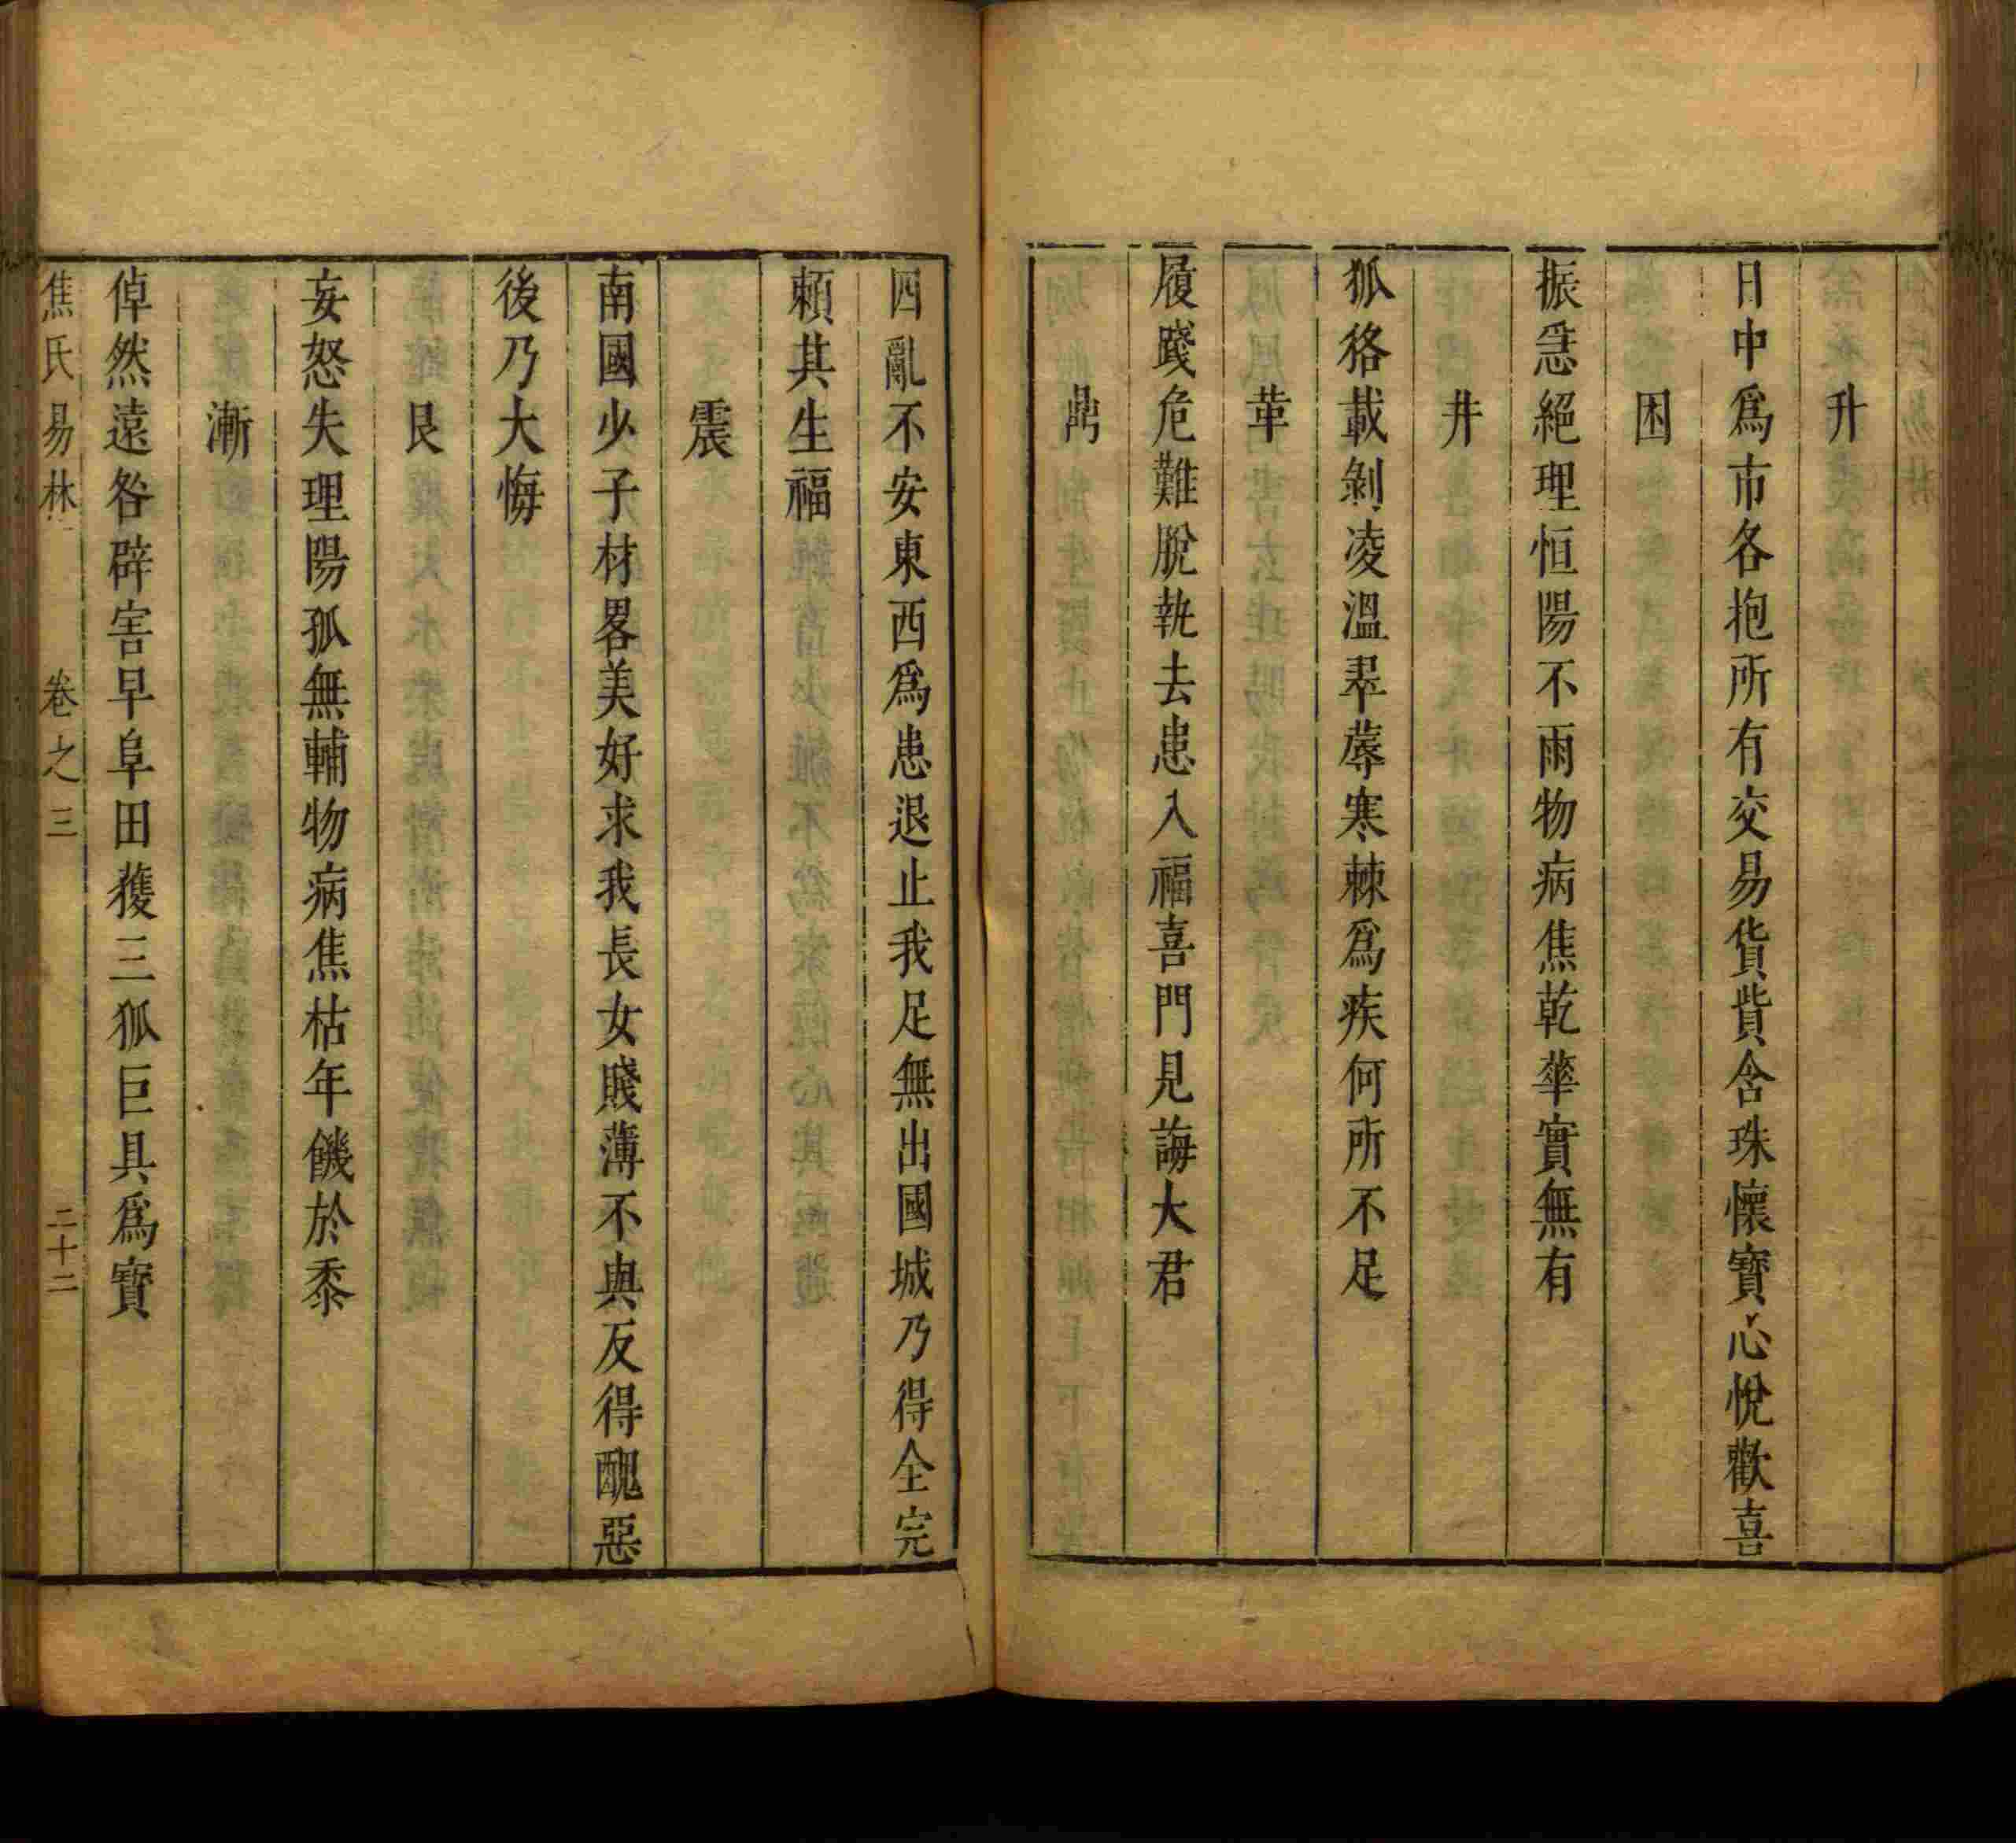 升
日中爲市各抱所有交易貨貲含珠懷寶心悅歡喜
困
振急絕理恒陽不雨物病焦乾華實無有
井
狐狢載剝凌溫翠蓐寒棘爲疾何所不足
革
履踐危難脫執去患入福喜門見誨大君
鼎
四亂不安東西爲患退止我足無出國城乃得全完
賴其生福
震
南國少子材畧美好求我長女賤薄不與反得醜惡
後乃大悔
艮
妄怒失理陽孤無輔物病焦枯年饑於黍
漸
倬然遠咎辟害早阜田獲三狐巨具爲寶
焦氏易林 卷之三 二十二